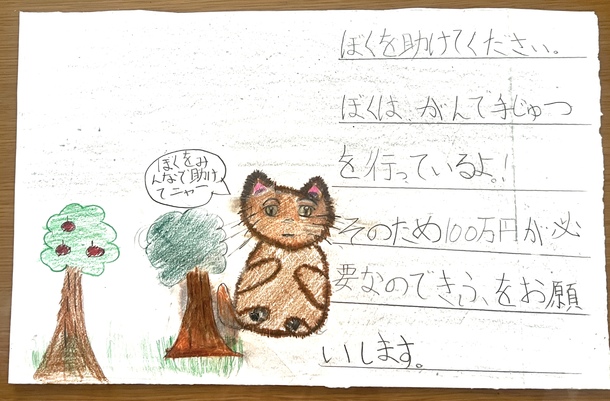 ぼくを助けてください。
ぼくは、がんで手じゅつ
を行っているよ。!
そのため100万円が必
要なのできふをお願
いします。
ぼくをみ
んなで助け
てニャー